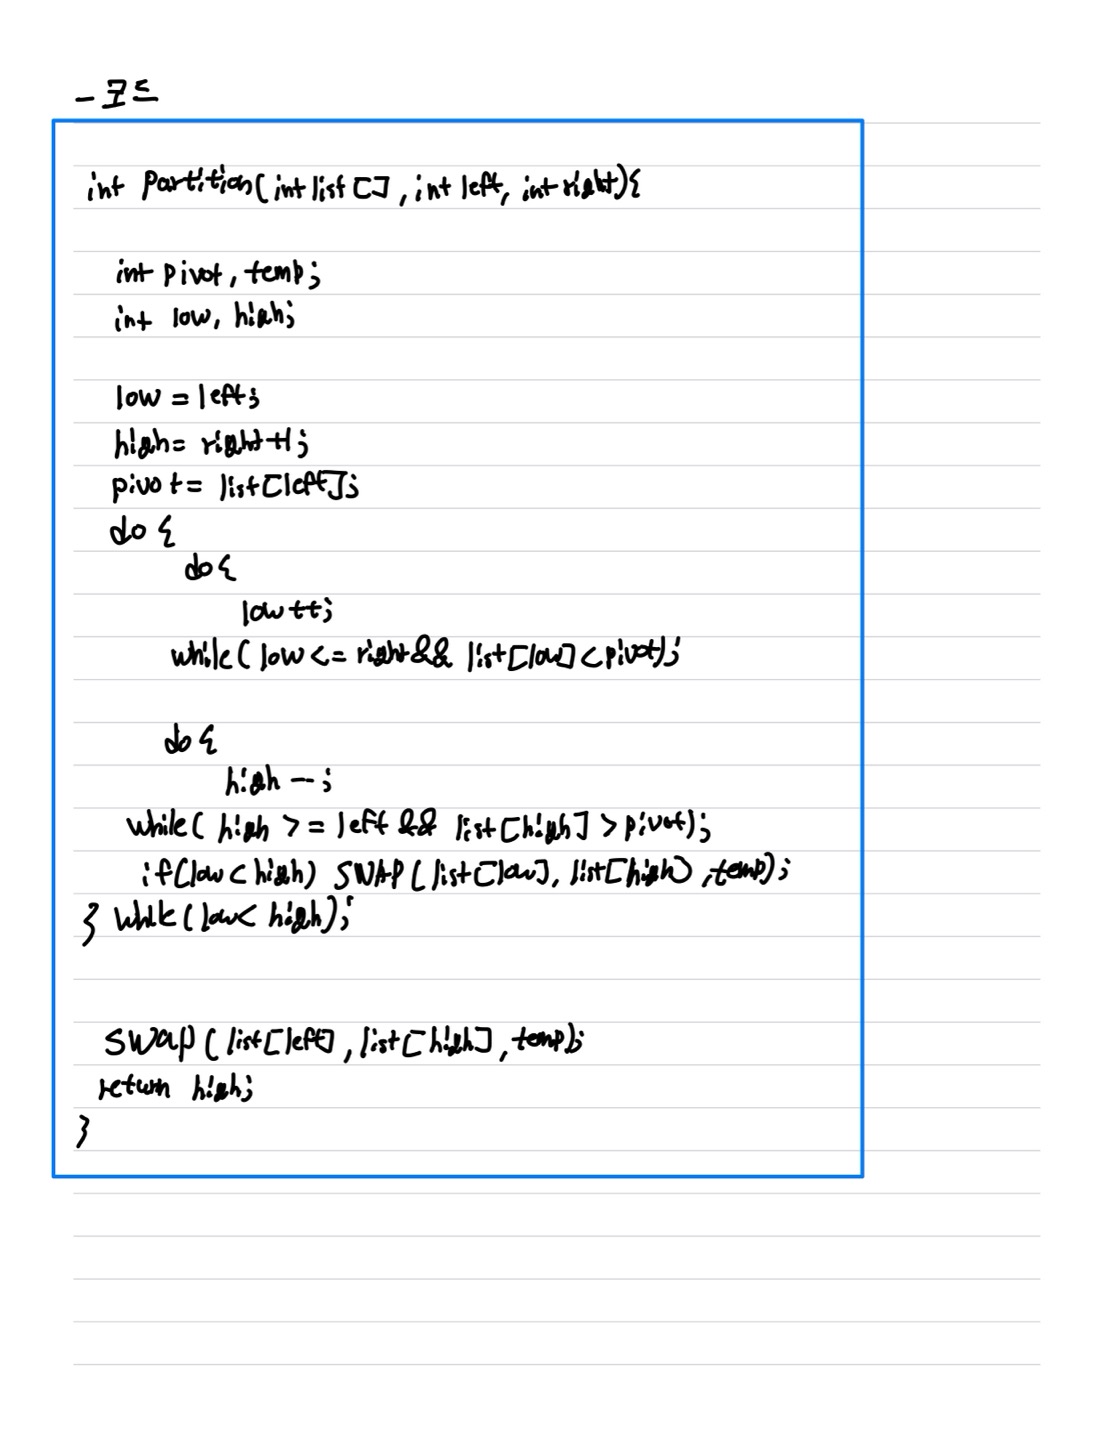 - 코드
int partition(int list[], int left, int right){
int pivot, temp;
int low, high;
low = left;
high = right+1;
pivot = list[left];
do {
do {
low++;
while( low <= right && list[low] < pivot);
do {
high --;
while( high >= left && list[high] > pivot);
if(low < high) SWAP(list[low], list[high), temp);
} while(low < high);
SWap(list[left], list[high], temp);
return high;
}